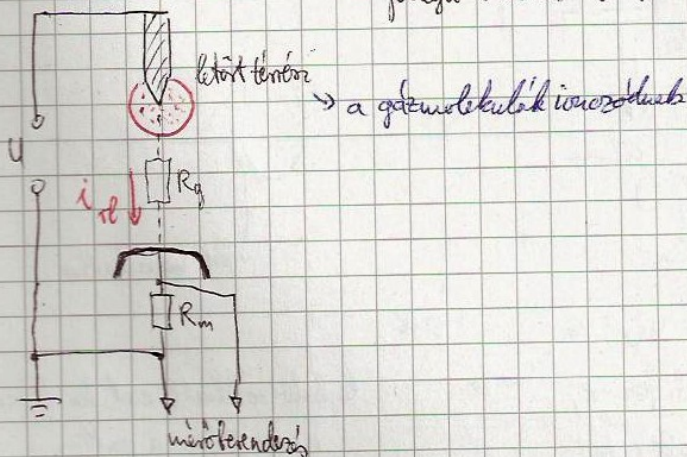 letört térrész
→ a gázmolekulák ionozódnak
U
i
Rg
Rm
mérőberendezés